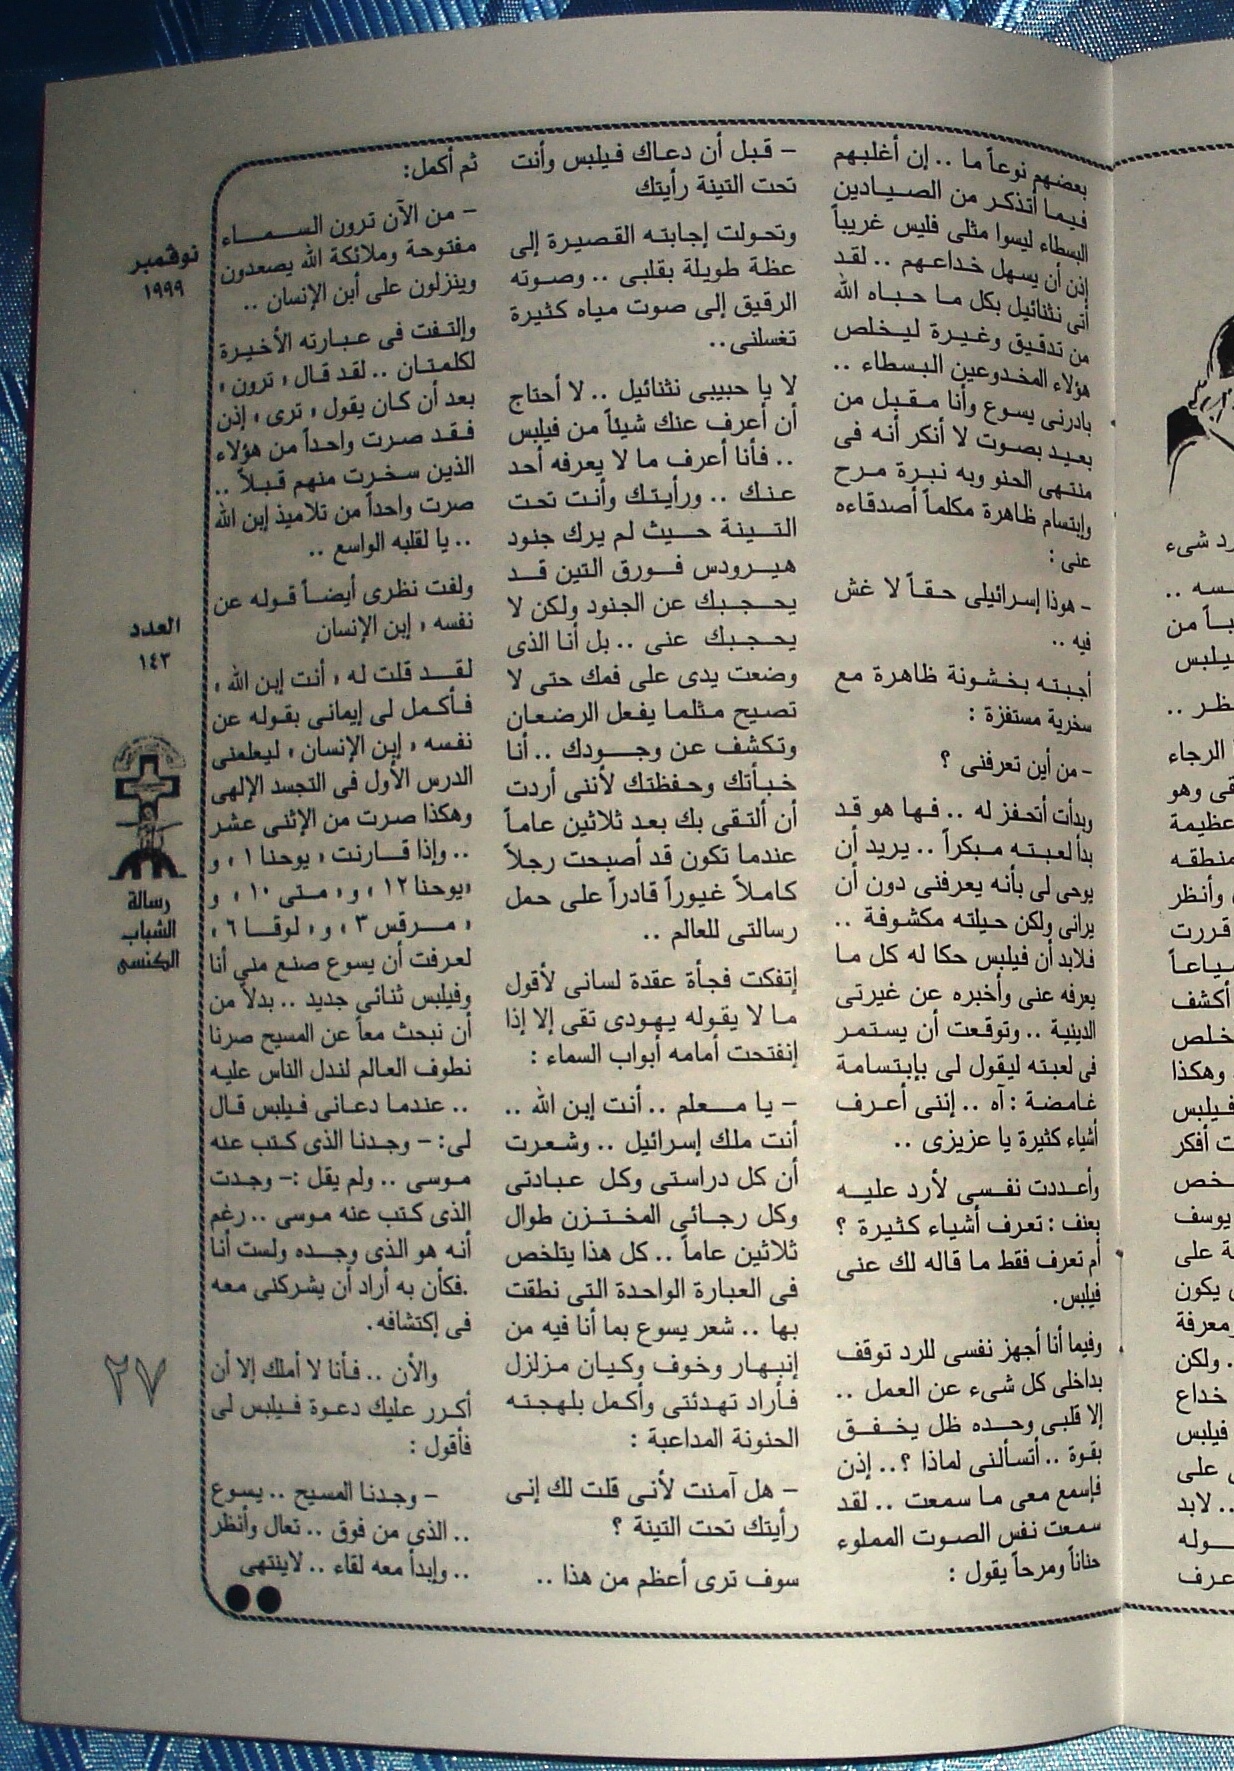 بعضهم نوعاً ما .. إن أغلبهم
فيما أتذكر من الصيادين
البسطاء ليسوا مثلى فليس غريباً
إذن أن يسهل خداعهم .. لقد
أتى نثنائيل بكل ما حباه الله
من تدقيق وغيرة ليخلص
هؤلاء المخدوعين البسطاء ..
بادرنى يسوع وأنا مقبل من
بعيد بصوت لا أنكر أنه فى
منتهى الحنو وبه نبرة مرح
وإبتسام ظاهرة مكلماً أصدقاءه
عنى :
- هوذا إسرائيلى حقاً لا غش
فيه ..
أجبته بخشونة ظاهرة مع
سخرية مستفزة :
- من أين تعرفنى ؟
وبدأت أتحفز له .. فها هو قد
بدأ لعبته مبكراً .. يريد أن
يوحى لى بأنه يعرفنى دون أن
يرانى ولكن حيلته مكشوفة ..
فلابد أن فيلبس حكا له كل ما
يعرفه عنى وأخبره عن غيرتى
الدينية .. وتوقعت أن يستمر
فى لعبته ليقول لى بإبتسامة
غامضة : آه .. إننى أعرف
أشياء كثيرة يا عزيزى ..
وأعددت نفسى لأرد عليه
بعنف : تعرف أشياء كثيرة ؟
أم تعرف فقط ما قاله لك عنى
فيلبس.
وفيما أنا أجهز نفسى للرد توقف
بداخلى كل شىء عن العمل ..
إلا قلبى وحده ظل يخفق
بقوة .. أتسألنى لماذا ؟.. إذن
فإسمع معى ما سمعت .. لقد
سمعت نفس الصوت المملوء
حناناً ومرحاً يقول :
- قبل أن دعاك فيلبس وأنت
تحت التينة رأيتك
وتحولت إجابته القصيرة إلى
عظة طويلة بقلبى .. وصوته
الرقيق إلى صوت مياه كثيرة
تغسلنى..
لا يا حبيبى نثنائيل .. لا أحتاج
أن أعرف عنك شيئاً من فيلبس
.. فأنا أعرف ما لا يعرفه أحد
عنك .. ورأيتك وأنت تحت
التينة حيث لم يرك جنود
هيرودس فورق التين قد
يحجبك عن الجنود ولكن لا
يحجبك عنى .. بل أنا الذى
وضعت يدى على فمك حتى لا
تصيح مثلما يفعل الرضعان
وتكشف عن وجودك .. أنا
خبأتك وحفظتك لأننى أردت
أن ألتقى بك بعد ثلاثين عاماً
عندما تكون قد أصبحت رجلاً
كاملاً غيوراً قادراً على حمل
رسالتى للعالم ..
إتفكت فجأة عقدة لسانى لأقول
ما لا يقوله يهودى تقى إلا إذا
إنفتحت أمامه أبواب السماء :
- يا معلم .. أنت إبن الله ..
أنت ملك إسرائيل .. وشعرت
أن كل دراستى وكل عبادتى
وكل رجائى المختزن طوال
ثلاثين عاماً .. كل هذا يتلخص
فى العبارة الواحدة التى نطقت
بها .. شعر يسوع بما أنا فيه من
إنبهار وخوف وكيان مزلزل
فأراد تهدئتى وأكمل بلهجته
الحنونة المداعبة :
- هل آمنت لأنى قلت لك إنى
رأيتك تحت التينة ؟
سوف ترى أعظم من هذا ..
ثم أكمل:
- من الآن ترون السماء
مفتوحة وملائكة الله يصعدون
وينزلون على أبن الإنسان ..
وإلتفت فى عبارته الأخيرة
لكلمتان .. لقد قال « ترون »
بعد أن كان يقول « ترى » إذن
فقد صرت واحداً من هؤلاء
الذين سخرت منهم قبلاً ..
صرت واحداً من تلاميذ إبن الله
.. يا لقلبه الواسع ..
ولفت نظرى أيضاً قوله عن
نفسه « إبن الإنسان
لقد قلت له « أنت إبن الله »
فأكمل لى إيمانى بقوله عن
نفسه « إبن الإنسان » ليعلمنى
الدرس الأول فى التجسد الإلهى
وهكذا صرت من الإثنى عشر
.. وإذا قارنت « يوحنا ١ » و
«يوحنا ١٢ » و « متى ١٠ » و
« مرقس ٣ » و « لوقا ٦ »
لعرفت أن يسوع صنع منى أنا
وفيلبس ثنائى جديد .. بدلاً من
أن نبحث معاً عن المسيح صرنا
نطوف العالم لندل الناس عليه
.. عندما دعانى فيلبس قال
لى: - وجدنا الذى كتب عنه
موسى .. ولم يقل :- وجدت
الذى كتب عنه موسى .. رغم
أنه هو الذى وجده ولست أنا
.فكأن به أراد أن يشركنى معه
فى إكتشافه.
والأن .. فأنا لا أملك إلا أن
أكرر عليك دعوة فيلبس لى
فأقول :
- وجدنا المسيح .. يسوع
.. الذى من فوق .. تعال وأنظر
.. وإبدأ معه لقاء .. لاينتهى
نوڤمبر
١٩٩٩
العدد
١٤٣
رسالة
الشباب
الكنسى
٢٧